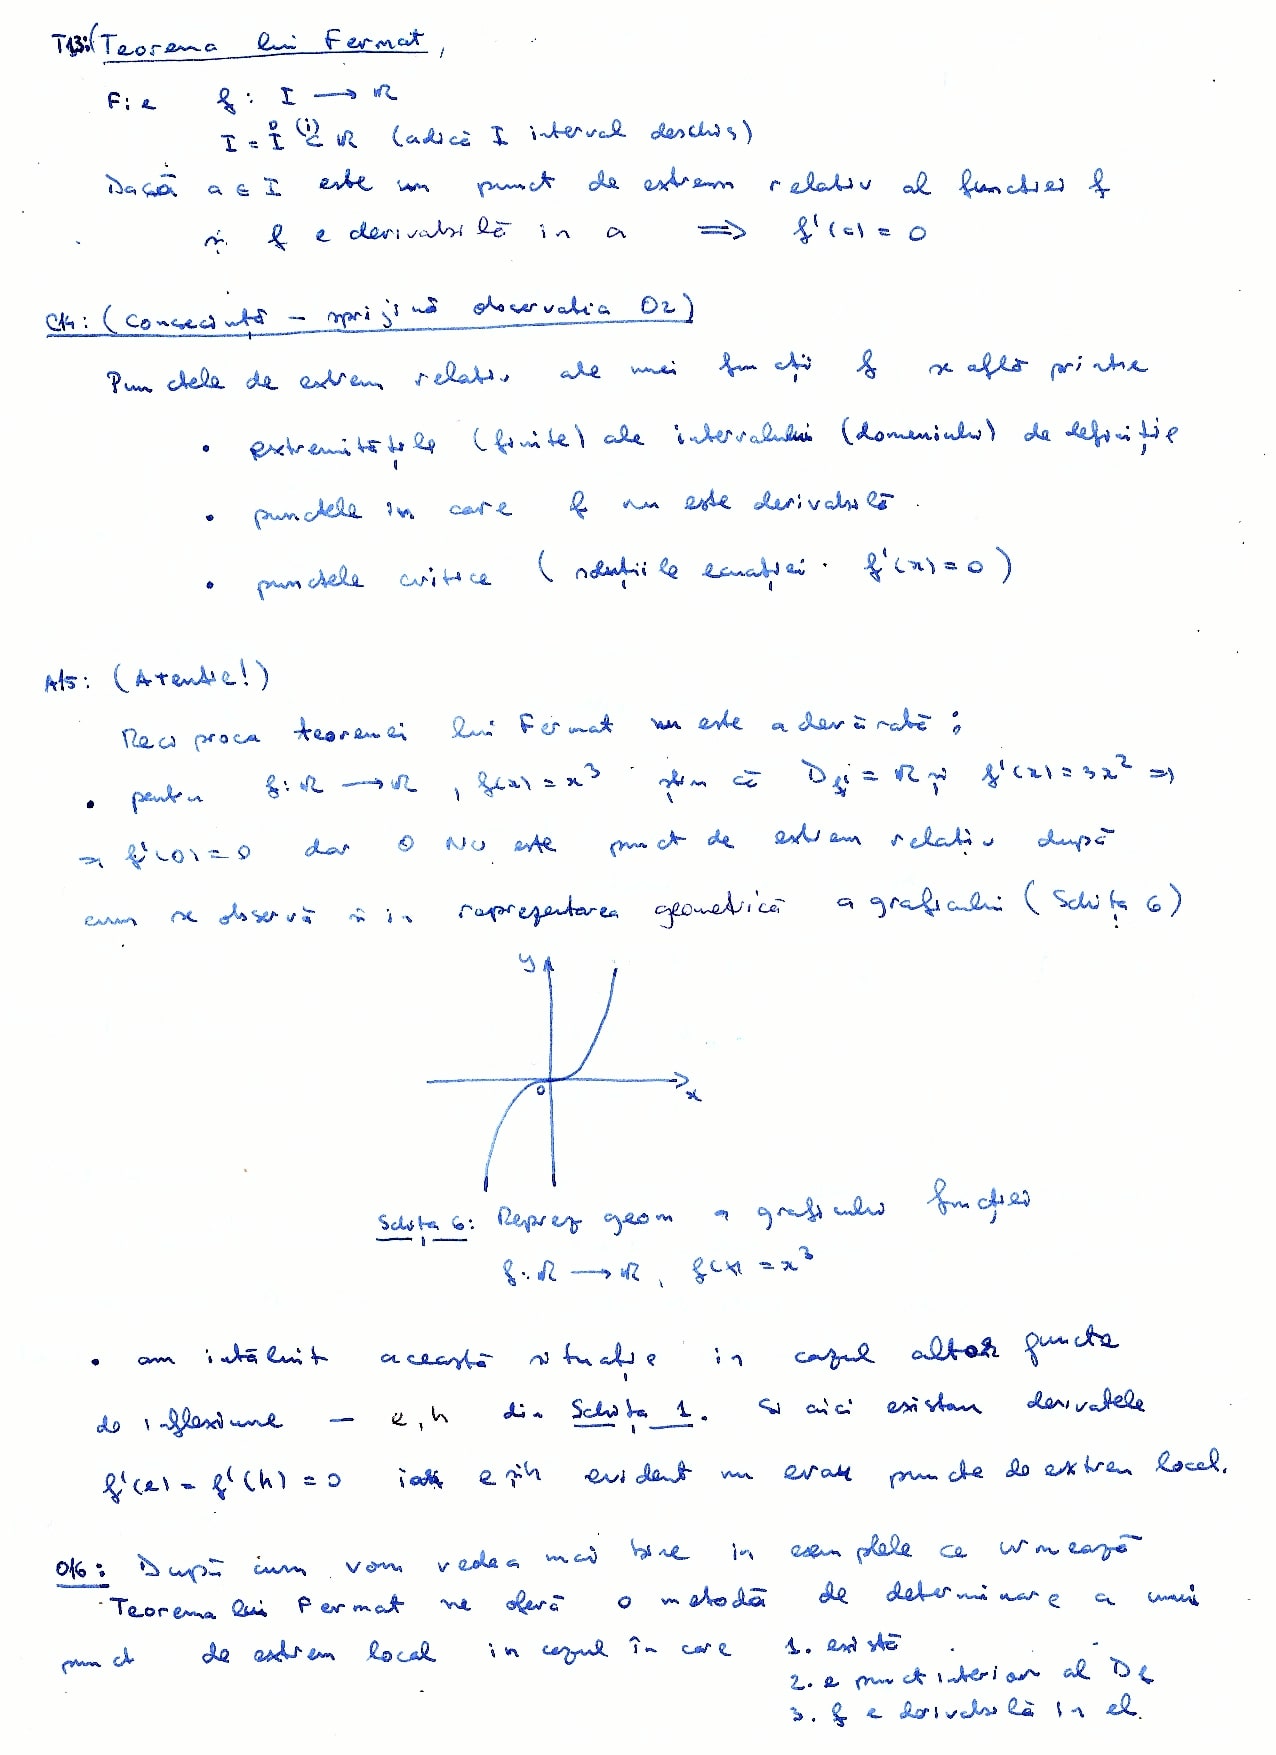 T13: (Teorema lui Fermat,
Fie f: I → ℝ
I = I̊ (i)⊆ ℝ (adică I interval deschis)
Dacă a ∈ I este un punct de extrem relativ al funcției f
și f e derivabilă în a ⟹ f'(a) = 0
C14: (Consecință – sprijină observația O2)
Punctele de extrem relativ ale unei funcții f se află printre
• extremitățile (finite) ale intervalului (domeniului) de definiție
• punctele în care f nu este derivabilă
• punctele critice (soluțiile ecuației f'(x) = 0)
A15: (Atenție!)
Reciproca teoremei lui Fermat nu este adevărată:
• pentru f: ℝ → ℝ, f(x) = x³ știm că Df' = ℝ și f'(x) = 3x² ⇒
⇒ f'(0) = 0 dar 0 NU este punct de extrem relativ după
cum se observă și în reprezentarea geometrică a graficului (Schița 6)
y
0
x
Schița 6: Reprez geom a graficului funcției
f: ℝ → ℝ, f(x) = x³
• am întâlnit această situație în cazul altor puncte
de inflexiune – e, h din Schița 1. Și aici existau derivatele
f'(e) = f'(h) = 0 iar e și h evident nu erau puncte de extrem local.
O16: După cum vom vedea mai bine în exemplele ce urmează
Teorema lui Fermat ne oferă o metodă de determinare a unui
punct de extrem local în cazul în care 1. există
2. e punct interior al Df
3. f e derivabilă în el.